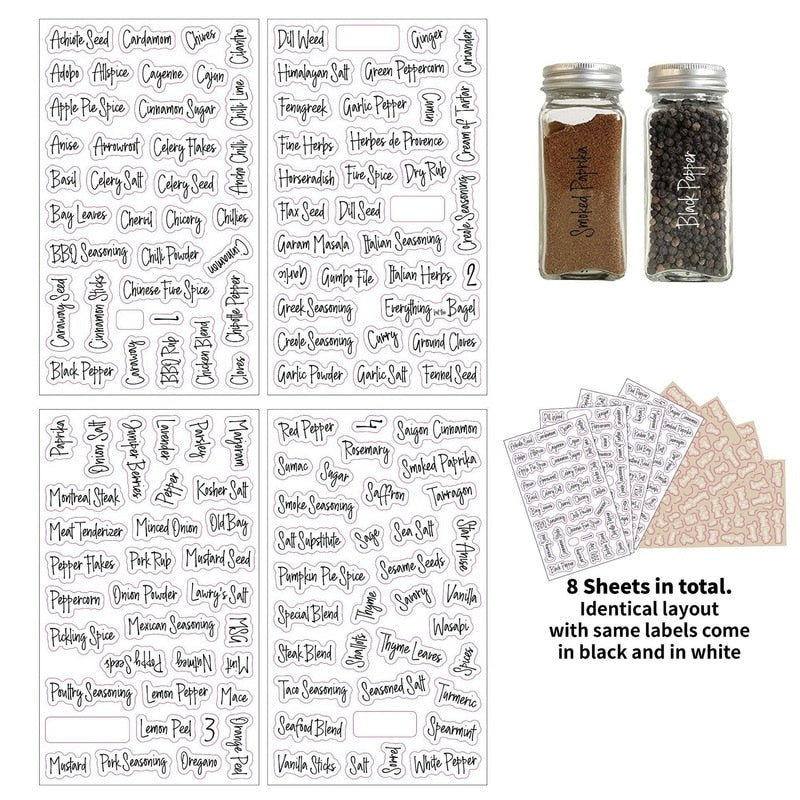 Achiote Seed Cardamom Chives Cilantro
Adobo Allspice Cayenne Cajun Chilli Lime
Apple Pie Spice Cinnamon Sugar
Anise Arrowroot Celery Flakes Ancho Chilli
Basil Celery Salt Celery Seed
Bay Leaves Chervil Chicory Chilies
BBQ Seasoning Chili Powder Cinnamon
Caraway Seed Cinnamon Sticks Chinese Five Spice Chipotle Pepper
1
Black Pepper Caraway BBQ Rub Chicken Blend Cloves
Dill Weed Ginger Coriander
Himalayan Salt Green Peppercorn
Fenugreek Garlic Pepper Cumin Cream of Tartar
Fine Herbs Herbes de Provence
Horseradish Five Spice Dry Rub
Flax Seed Dill Seed Creole Seasoning
Garam Masala Italian Seasoning
Garlic Gumbo File Italian Herbs 2
Greek Seasoning Everything but the Bagel
Creole Seasoning Curry Ground Cloves
Garlic Powder Garlic Salt Fennel Seed
Smoked Paprika
Black Pepper
Paprika Onion Salt Juniper Berries Lavender Parsley Marjoram
Montreal Steak Pepper Kosher Salt
Meat Tenderizer Minced Onion Old Bay
Pepper Flakes Pork Rub Mustard Seed
Peppercorn Onion Powder Lawry's Salt
Pickling Spice Mexican Seasoning MSG
Poppy Seeds Nutmeg Mint
Poultry Seasoning Lemon Pepper Mace
Lemon Peel 3 Orange Peel
Mustard Pork Seasoning Oregano
Red Pepper 4 Saigon Cinnamon
Rosemary
Sumac Sugar Smoked Paprika
Smoke Seasoning Saffron Tarragon
Salt Substitute Sage Sea Salt Star Anise
Pumpkin Pie Spice Sesame Seeds
Special Blend Thyme Savory Vanilla
Wasabi
Steak Blend Shallots Thyme Leaves Spices
Taco Seasoning Seasoned Salt Turmeric
Seafood Blend Spearmint
Vanilla Sticks Salt Sorrel White Pepper
8 Sheets in total.
Identical layout
with same labels come
in black and in white